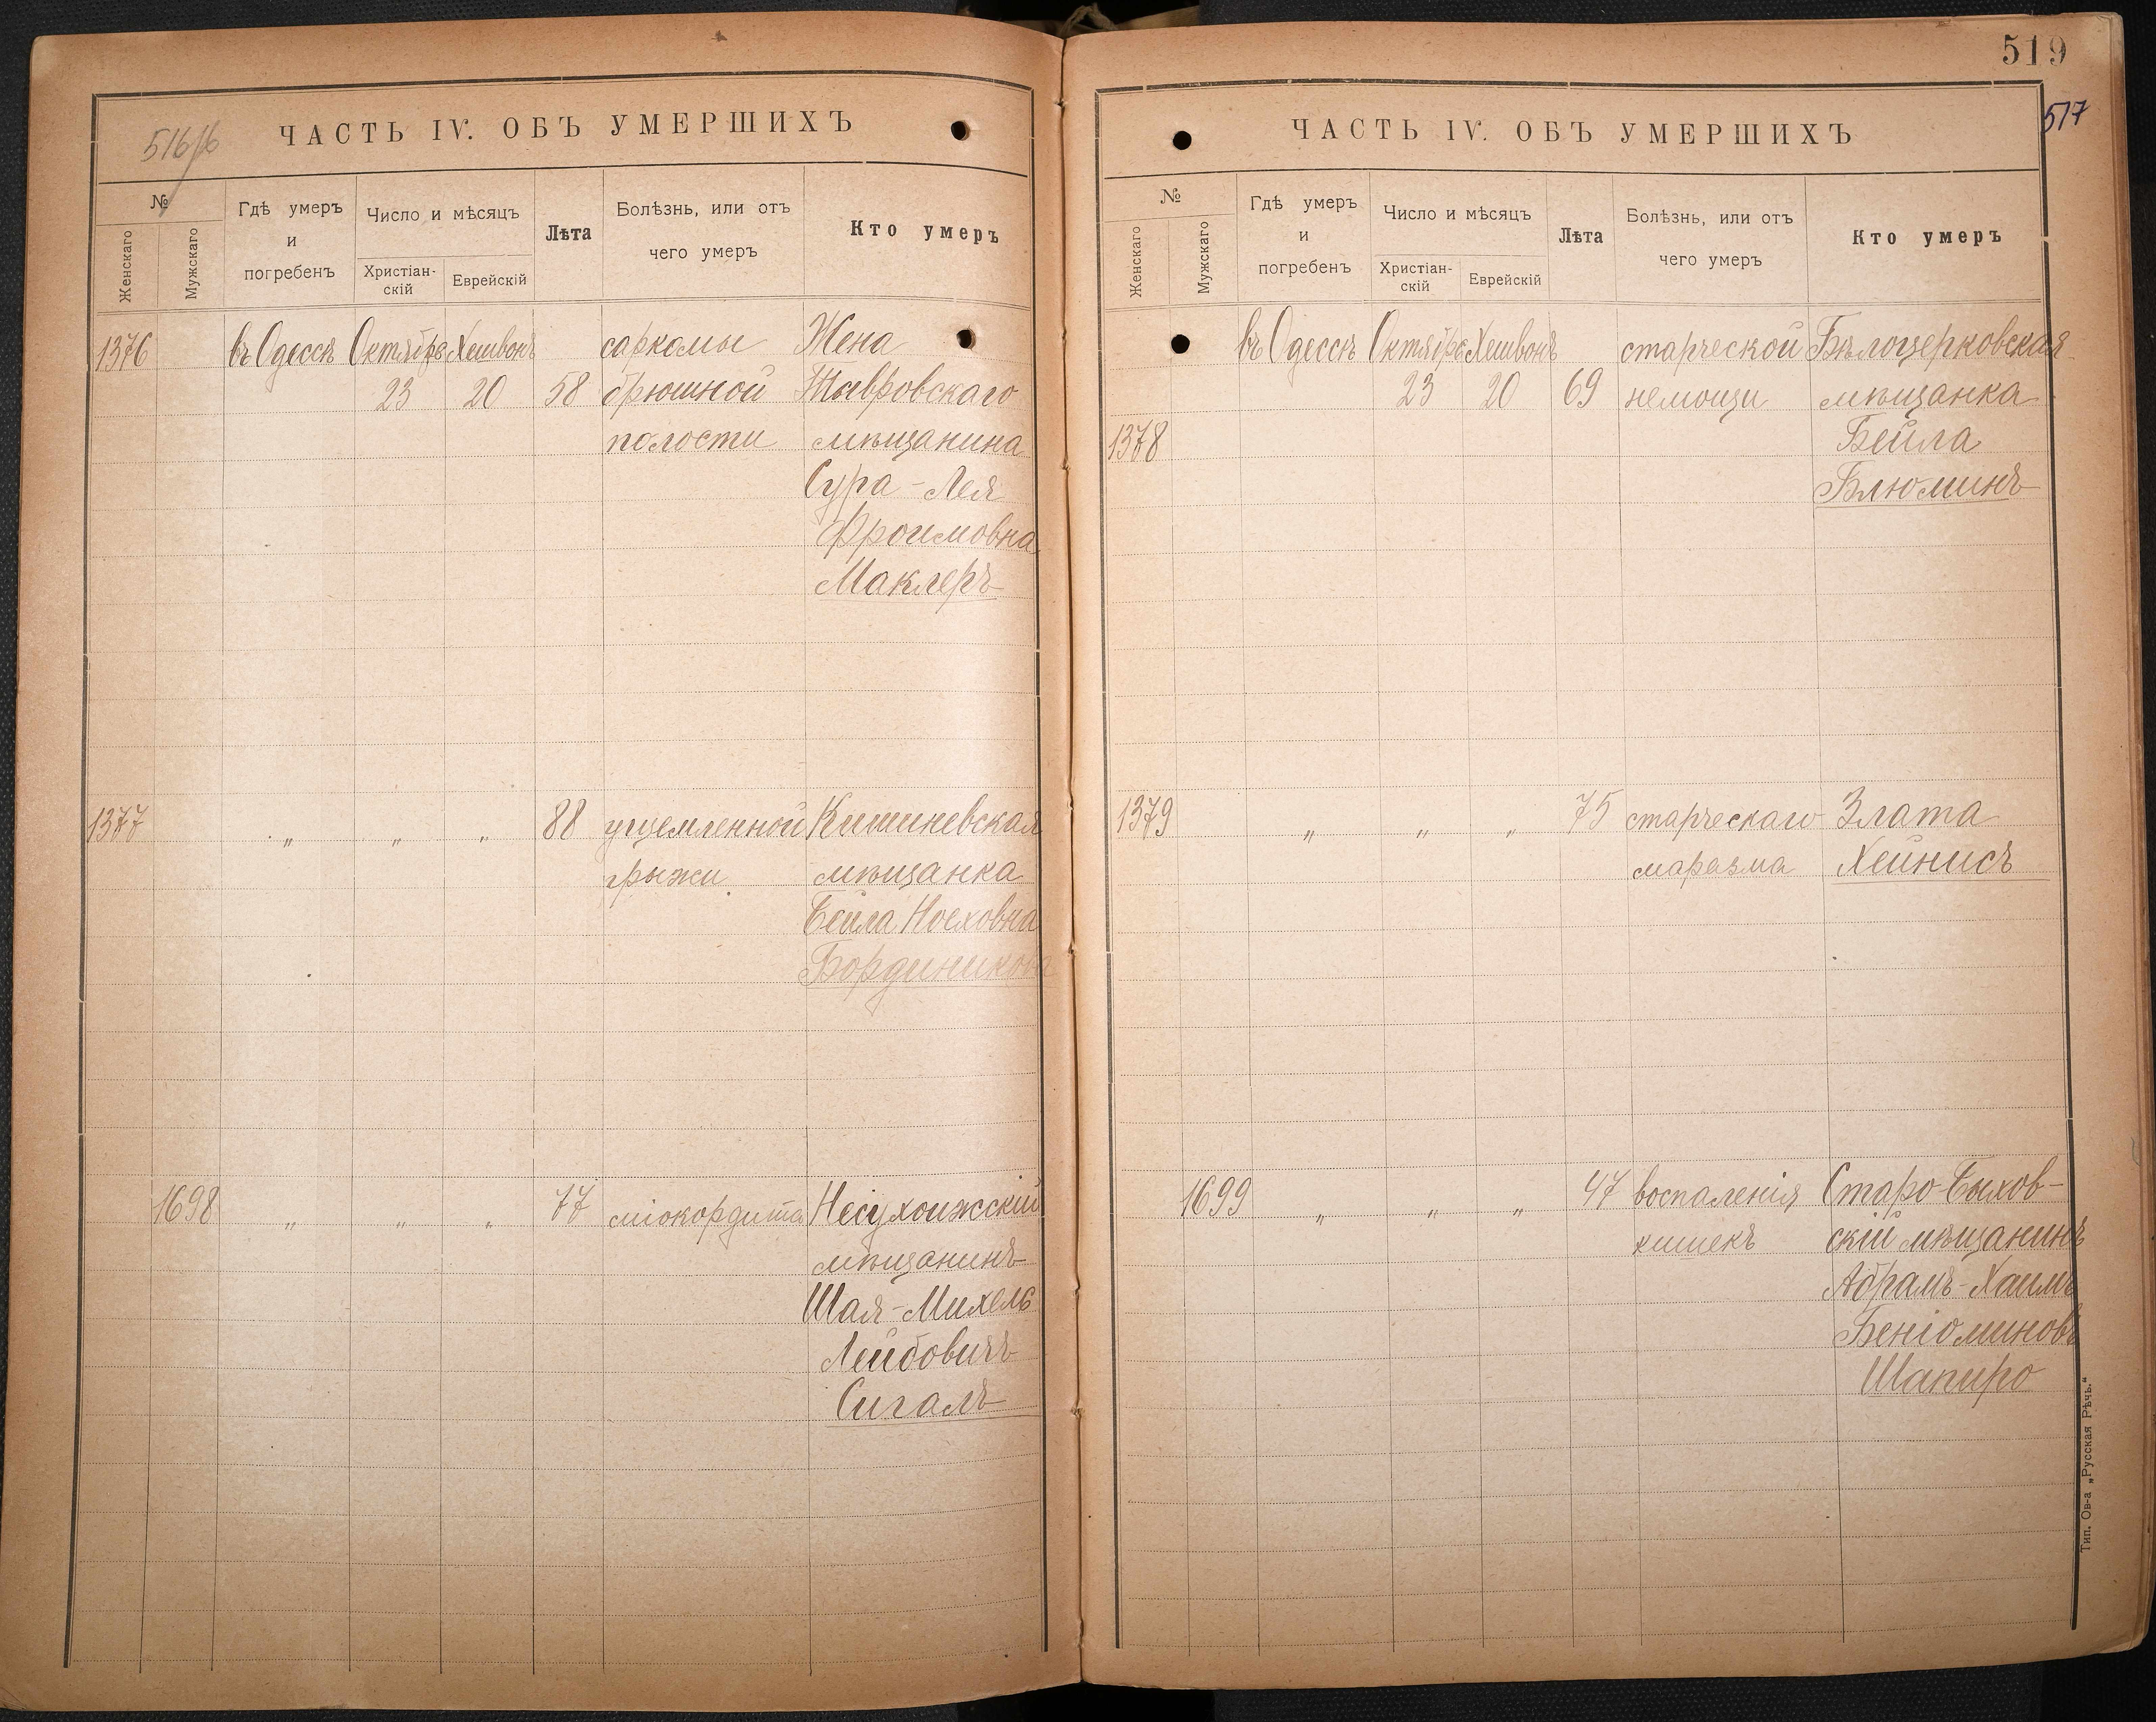 516/б
ЧАСТЬ IV. ОБЪ УМЕРШИХЪ
№
Женскаго
Мужскаго
Гдѣ умеръ
и
погребенъ
Число и мѣсяцъ
Христіан-
скій
Еврейскій
Лѣта
Болѣзнь, или отъ
чего умеръ
Кто умеръ
1376 въ Одессѣ Октября Хешвонъ саркомы Жена
23 20 58 брюшной Тывровскаго
полости мѣщанина
Сура-Лея
Фроимовна
Маклеръ
1377 „ „ „ 88 ущемленной Кишиневская
грыжи мѣщанка
Бейла Ноеховна
1698 „ „ „ 77 міокордита Несухоижскій
мѣщанинъ
Шая-Михель
Лейбовичъ
Сигалъ
519
517
ЧАСТЬ IV. ОБЪ УМЕРШИХЪ
№
Женскаго
Мужскаго
Гдѣ умеръ
и
погребенъ
Число и мѣсяцъ
Христіан-
скій
Еврейскій
Лѣта
Болѣзнь, или отъ
чего умеръ
Кто умеръ
въ Одессѣ Октября Хешвонъ старческой Бѣлоцерковская
23 20 69 немощи мѣщанка
1378 Бейла
Блюминъ
1379 „ „ „ 75 старческаго Злата
маразма Хейнисъ
1699 „ „ „ 47 воспаленія Старо-Быхов-
кишекъ скій мѣщанинъ
Абрамъ-Хаимъ
Беніоминовъ
Шапиро
Тип. Ов-а „Русская Рѣчь.“